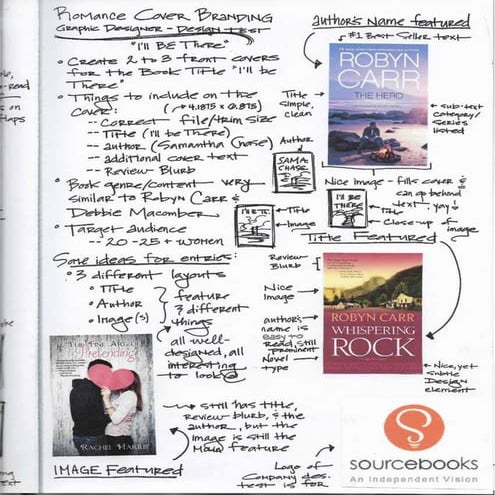 Romance Cover Branding
Graphic Designer - Design test
"I'll Be There"
• Create 2 to 3 front covers
for the Book Title "I'll be
There"
• Things to include on the
cover:
-- Correct file/trim size
-- Title (I'll be There)
-- author (Samantha Chase)
-- additional cover text
-- Review Blurb
• Book genre/content very
similar to Robyn Carr &
Debbie Macomber
• Target audience
-- 20-25+ women
Some ideas for entries:
• 3 different layouts
• Title
• Author
• Image(s)
feature
3 different
things
all well-
designed, all
interesting
to look @
THE FINE ART OF
Pretending
RACHEL HARRIS
IMAGE Featured
still has title,
review blurb, & the
author, but the
image is still the
Main feature
author's Name featured
#1 Best Seller text
ROBYN
CARR
THE HERO
Title
simple,
clean
sub-text
category/
series
listed
Author
SAMA
CHASE
Nice image - fills cover &
can go behind
text, yay!
I'LL BE
THERE
Title
Close-up of
image
Title
Image
Title Featured
Review
Blurb
Nice
Image
author's
name is
easy to
Read, still
prominent
Novel
type
ROBYN CARR
WHISPERING
ROCK
Nice, yet
subtle
Design
element
Logo of
Company des.
test is for
sourcebooks
An Independent Vision